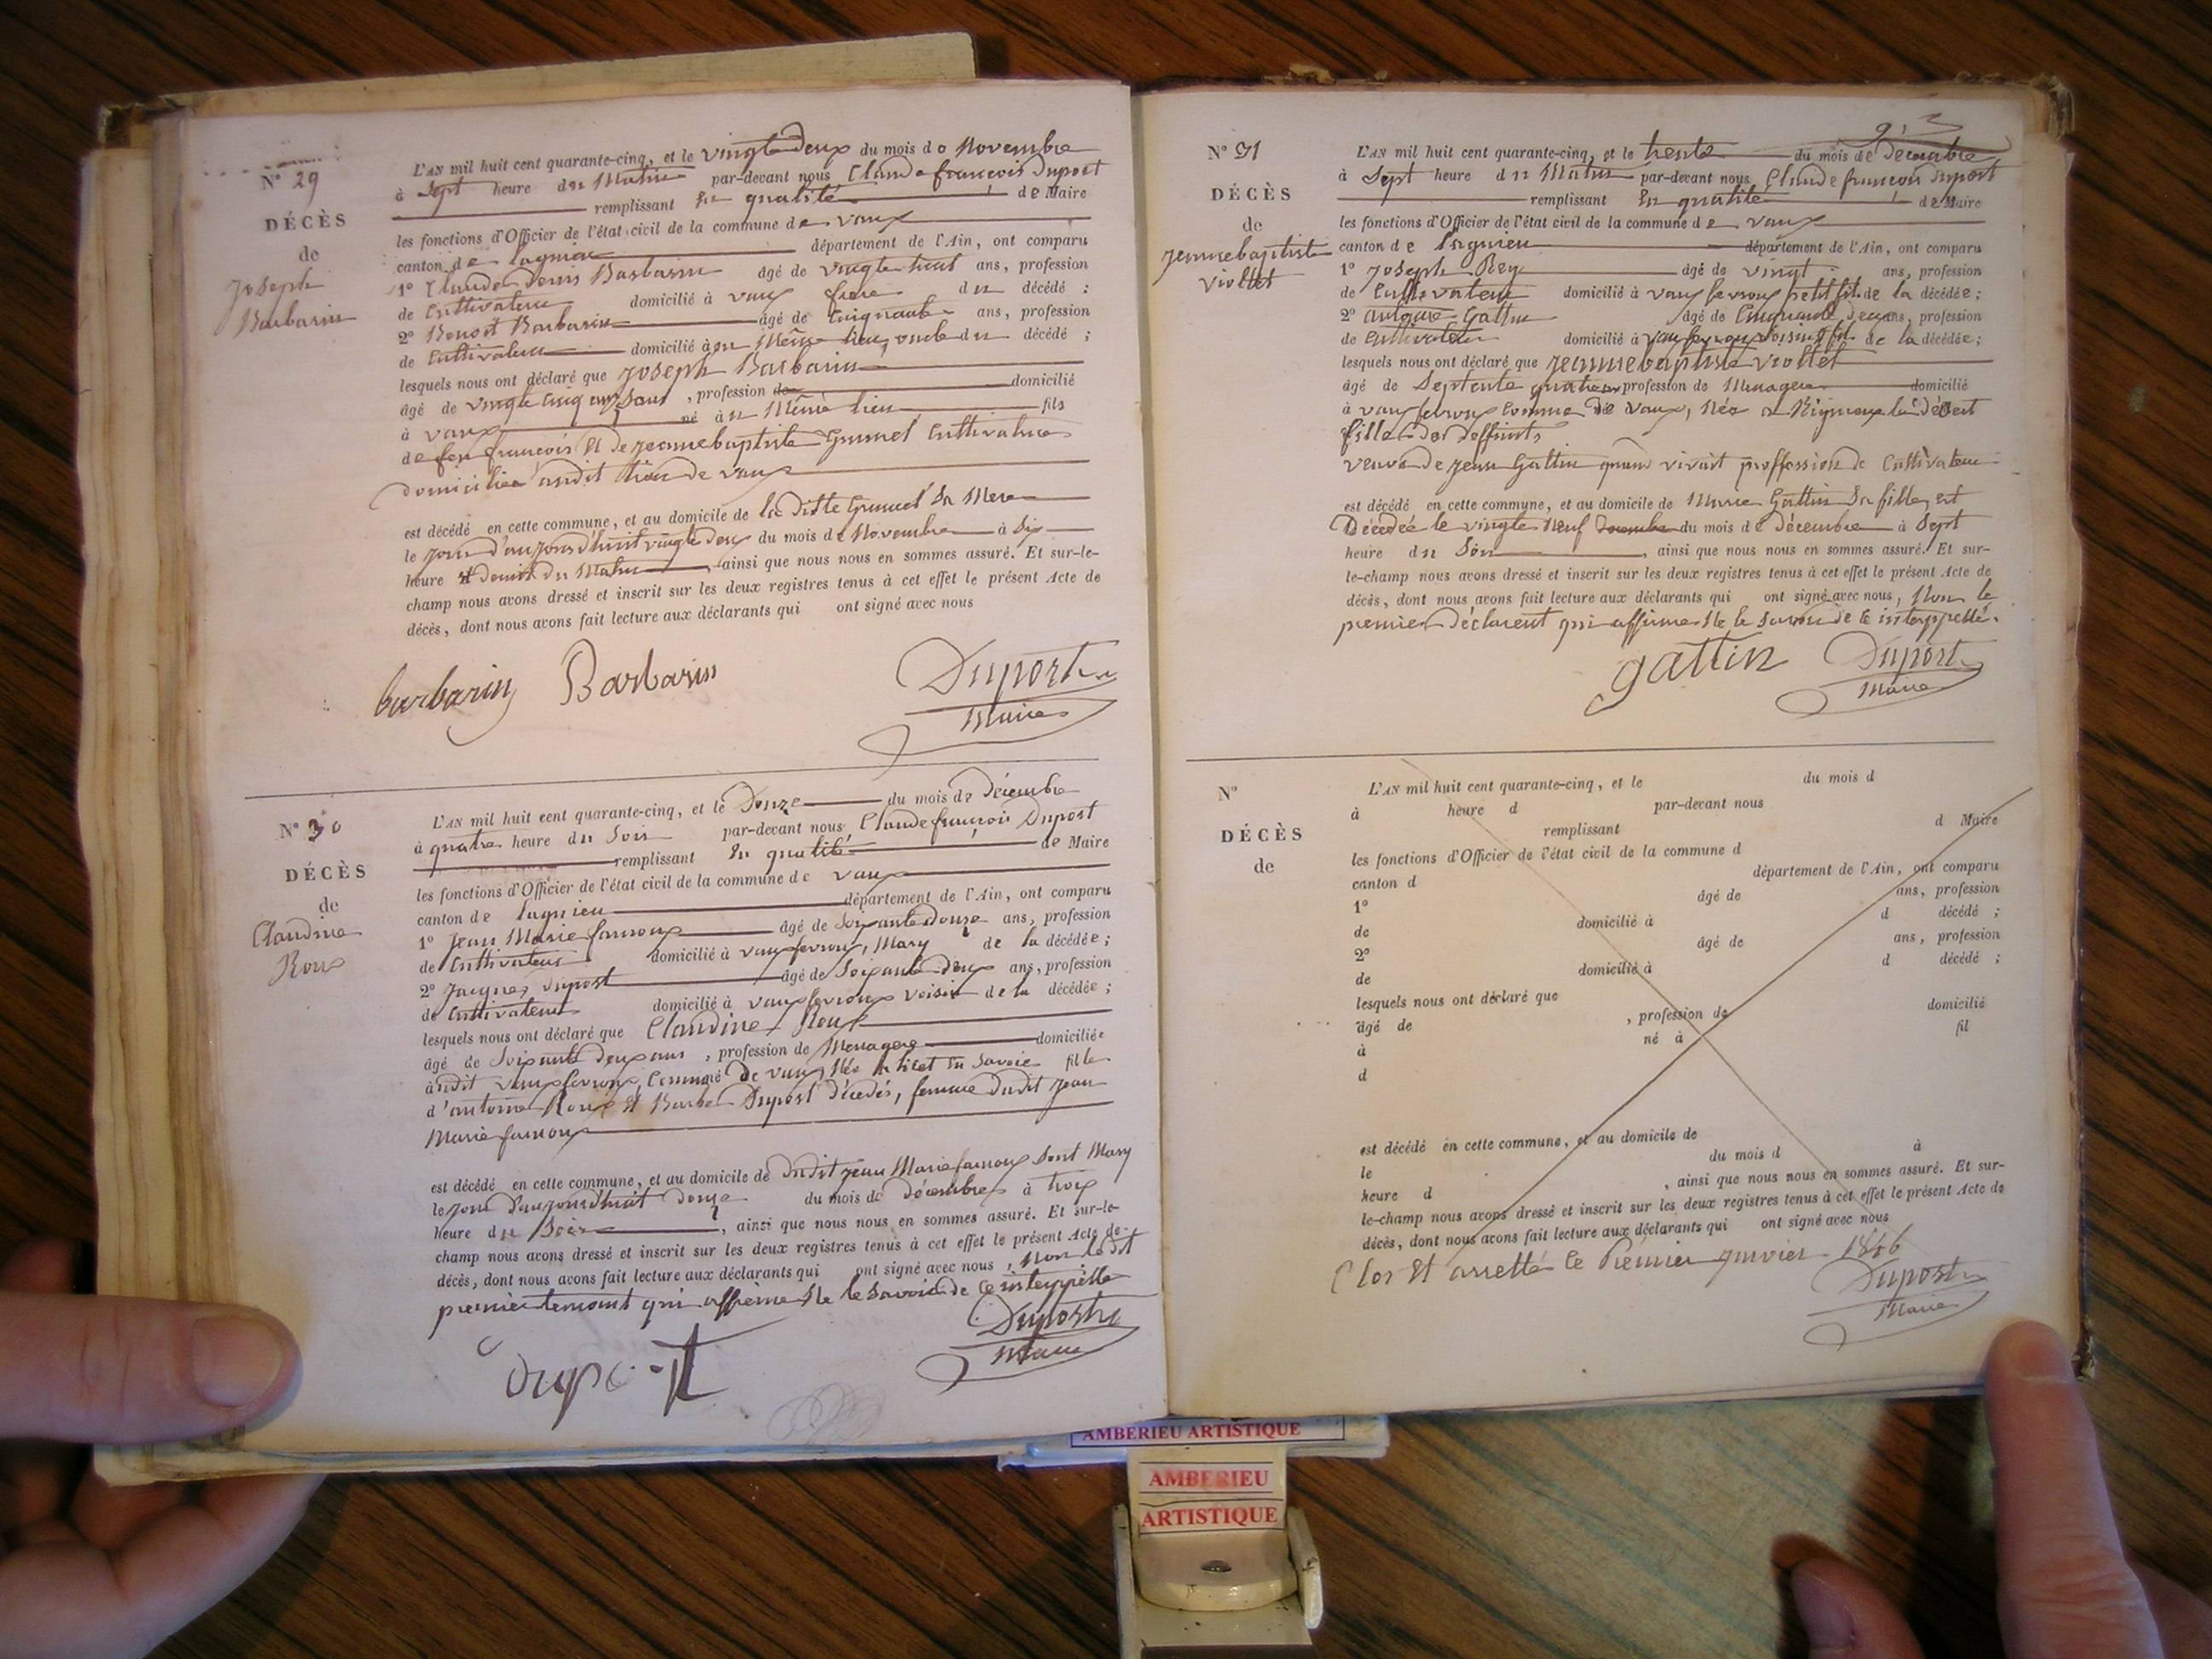 N° 29
DÉCÈS
de
Joseph
Barbarin
L'AN mil huit cent quarante-cinq, et le vingt deux du mois de Novembre
à Sept heure du Matin par-devant nous Claude françois Duport
remplissant En qualité de Maire
les fonctions d'Officier de l'état civil de la commune de vaux
canton de lagnieu département de l'Ain, ont comparu
1° Claude Denis Barbarin âgé de vingt huit ans, profession
de Cultivateur domicilié à vaux frere du décédé ;
2° Benoit Barbarin âgé de Cinquante ans, profession
de Cultivateur domicilié au Même lieu, oncle du décédé ;
lesquels nous ont déclaré que Joseph Barbarin
âgé de vingt cinq ans Sans , profession de domicilié
à vaux né au Même lieu fils
de feu françois Et de jeannebaptiste Grumel Cultivatrice
domiciliée audit lieu de vaux
est décédé en cette commune, et au domicile de la ditte Grumel Sa Mere
le jour d'aujourd'huit vingt deux du mois de Novembre à Six
heure et demie du Matin , ainsi que nous nous en sommes assuré. Et sur-le-
champ nous avons dressé et inscrit sur les deux registres tenus à cet effet le présent Acte de
décès, dont nous avons fait lecture aux déclarants qui ont signé avec nous
barbarin Barbarin Duport
Maire
N° 30
DÉCÈS
de
Claudine
Roux
L'AN mil huit cent quarante-cinq, et le Douze du mois de Décembre
à quatre heure du Soir par-devant nous Claude françois Duport
remplissant En qualité de Maire
les fonctions d'Officier de l'état civil de la commune de vaux
canton de lagnieu département de l'Ain, ont comparu
1° Jean Marie famoux âgé de Soixante douze ans, profession
de Cultivateur domicilié à vaux fevroux, Mary de la décédée ;
2° Jacques Duport âgé de Soixante deux ans, profession
de Cultivateur domicilié à vaux fevroux voisin de la décédée ;
lesquels nous ont déclaré que Claudine Roux
âgé de Soixante deux ans , profession de Menagere domiciliée
audit vaux fevroux, Commune de vaux, Née en Savoie fille
d'antoine Roux Et Barbe Duport décedés, femme dudit Jean
Marie famoux
est décédé en cette commune, et au domicile de dudit jean Marie famoux Sont Mary
le jour d'aujourd'huit douze du mois de décembre à trois
heure du Soir , ainsi que nous nous en sommes assuré. Et sur-le-
champ nous avons dressé et inscrit sur les deux registres tenus à cet effet le présent Acte de
décès, dont nous avons fait lecture aux déclarants qui ont signé avec nous , Non ledit
premier temoint qui affirme Ne le Savoir de ce interppellé
Duport
Maire
duport
N° 31
DÉCÈS
de
Jeannebaptiste
viollet
L'AN mil huit cent quarante-cinq, et le trente du mois de Décembre
à Sept heure du Matin par-devant nous Claude françois Duport
remplissant En qualité de Maire
les fonctions d'Officier de l'état civil de la commune de vaux
canton de lagnieu département de l'Ain, ont comparu
1° Joseph Rey âgé de vingt ans, profession
de Cultivateur domicilié à vaux fevroux petit fils de la décédée ;
2° antoine Gattin âgé de Cinquante deux ans, profession
de Cultivateur domicilié à vaux fevroux voisin de la décédée ;
lesquels nous ont déclaré que Jeannebaptiste viollet
âgé de Septente quatre ans, profession de Menagere domicilié
à vaux fevroux Commune de vaux, Née a Rigneux le désert
fille des deffunts
veuve de jean Gattin quand vivait proffession de Cultivateur
est décédé en cette commune, et au domicile de Marie Gattin Sa fille, est
Décedée le vingt Neuf du mois de décembre à Sept
heure du Soir , ainsi que nous nous en sommes assuré. Et sur-
le-champ nous avons dressé et inscrit sur les deux registres tenus à cet effet le présent Acte de
décès, dont nous avons fait lecture aux déclarants qui ont signé avec nous, Non le
premier déclarent qui affirme Ne le Savoir de ce interppellé.
gattin Duport
Maire
N°
DÉCÈS
de
L'AN mil huit cent quarante-cinq, et le du mois d
à heure d par-devant nous
remplissant d Maire
les fonctions d'Officier de l'état civil de la commune d
canton d département de l'Ain, ont comparu
1° âgé de ans, profession
de domicilié à d décédé ;
2° âgé de ans, profession
de domicilié à d décédé ;
lesquels nous ont déclaré que
âgé de , profession de domicilié
à né à fil
d
est décédé en cette commune, et au domicile de
le du mois d à
heure d , ainsi que nous nous en sommes assuré. Et sur-
le-champ nous avons dressé et inscrit sur les deux registres tenus à cet effet le présent Acte de
décès, dont nous avons fait lecture aux déclarants qui ont signé avec nous
Clos Et arretté le Premier janvier 1846
Duport
Maire
AMBERIEU ARTISTIQUE
AMBERIEU
ARTISTIQUE